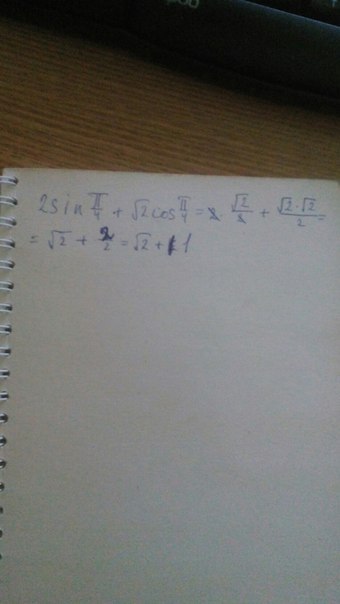 2sin π/4 + √2cos π/4 = 2 · √2/2 + √2·√2/2 =
= √2 + 2/2 = √2 + 1